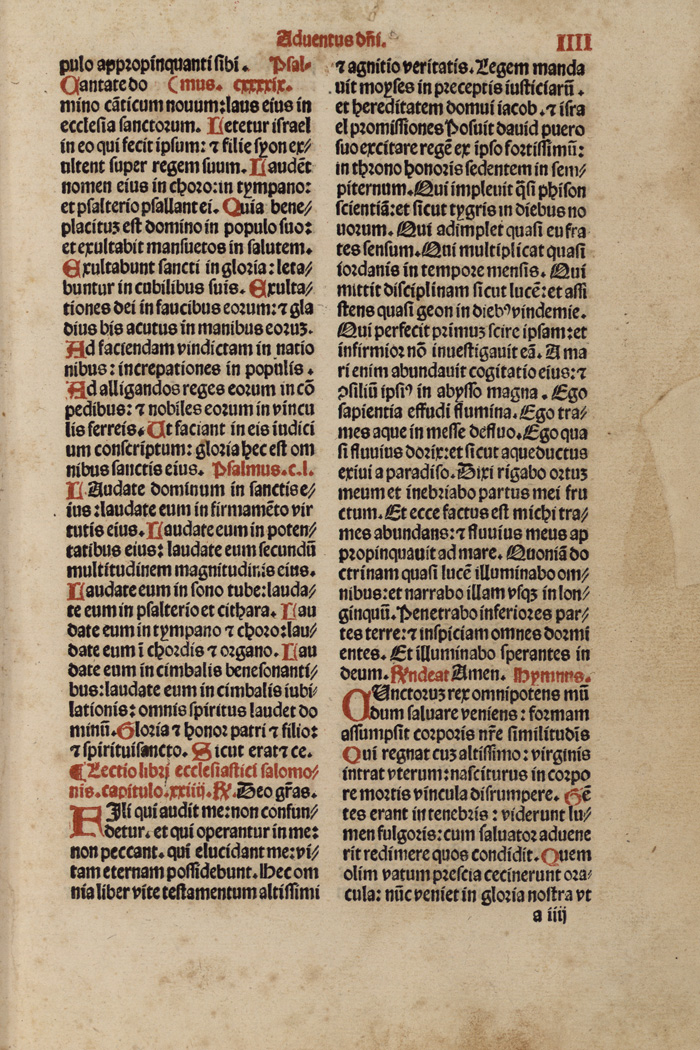 Aduentus dñi.
IIII
pulo appropinquanti sibi. Psal-
Cantate do (mus. cxxxxix.
mino cãticum nouum: laus eius in
ecclesia sanctorum. Letetur israel
in eo qui fecit ipsum: ⁊ filie syon ex⸗
ultent super regem suum. Laudẽt
nomen eius in choro: in tympano:
et psalterio psallant ei. Quia bene⸗
placituꝫ est domino in populo suo:
et exultabit mansuetos in salutem.
Exultabunt sancti in gloria: leta⸗
buntur in cubilibus suis. Exulta⸗
tiones dei in faucibus eorum: ⁊ gla
dius bis acutus in manibus eoruꝫ.
Ad faciendam vindictam in natio
nibus: increpationes in populis.
Ad alligandos reges eorum in cõ
pedibus: ⁊ nobiles eorum in vincu
lis ferreis. Ut faciant in eis iudici
um conscriptum: gloria hec est om
nibus sanctis eius. Psalmus.c.l.
LAudate dominum in sanctis e⸗
ius: laudate eum in firmamẽto vir
tutis eius. Laudate eum in poten⸗
tatibus eius: laudate eum secundũ
multitudinem magnitudinis eius.
Laudate eum in sono tube: lauda⸗
te eum in psalterio et cithara. Lau
date eum in tympano ⁊ choro: lau⸗
date eum ĩ chordis ⁊ organo. Lau
date eum in cimbalis benesonanti⸗
bus: laudate eum in cimbalis iubi⸗
lationis: omnis spiritus laudet do
minũ. Gloria ⁊ honor patri ⁊ filio:
⁊ spirituisancto. Sicut erat ⁊ ce.
¶ Lectio libri ecclesiastici salomo⸗
nis. capitulo.xxiiij. ℟. Deo gr̃as.
FIli qui audit me: non confun⸗
detur. et qui operantur in me:
non peccant. qui elucidant me: vi⸗
tam eternam possidebunt. Hec om
nia liber vite testamentum altissimi
⁊ agnitio veritatis. Legem manda
uit moyses in preceptis iusticiarũ.
et hereditatem domui iacob. ⁊ isra
el promissiones Posuit dauid puero
suo excitare regẽ ex ipso fortissimũ:
in throno honoris sedentem in sem⸗
piternum. Qui impleuit q̃si phison
scientiã: et sicut tygris in diebus no
uorum. Qui adimplet quasi eufra
tes sensum. Qui multiplicat quasi
iordanis in tempore mensis. Qui
mittit disciplinam sicut lucẽ: et assi
stens quasi geon in diebꝰ vindemie.
Qui perfecit primuꝫ scire ipsam: et
infirmior nõ inuestigauit eã. A ma
ri enim abundauit cogitatio eius: ⁊
ↄsiliũ ipsiꝰ in abysso magna. Ego
sapientia effudi flumina. Ego tra⸗
mes aque in messe defluo. Ego qua
si fluuius dorix: et sicut aqueductus
exiui a paradiso. Dixi rigabo ortuꝫ
meum et inebriabo partus mei fru
ctum. Et ecce factus est michi tra⸗
mes abundans: ⁊ fluuius meus ap
propinquauit ad mare. Quoniã do
ctrinam quasi lucẽ illuminabo om⸗
nibus: et narrabo illam vsqꝫ in lon⸗
ginquũ. Penetrabo inferiores par⸗
tes terre: ⁊ inspiciam omnes dormi
entes. Et illuminabo sperantes in
deum. ℟ndeat Amen. Hymnus.
CUnctoruꝫ rex omnipotens mũ
dum saluare veniens: formam
assumpsit corporis nr̃e similitudis
Qui regnat cuꝫ altissimo: virginis
intrat vterum: nasciturus in corpo
re mortis vincula disrumpere. Gẽ
tes erant in tenebris: viderunt lu⸗
men fulgoris: cum saluator aduene
rit redimere quos condidit. Quem
olim vatum prescia cecinerunt ora⸗
cula: nũc veniet in gloria nostra vt
a iiij